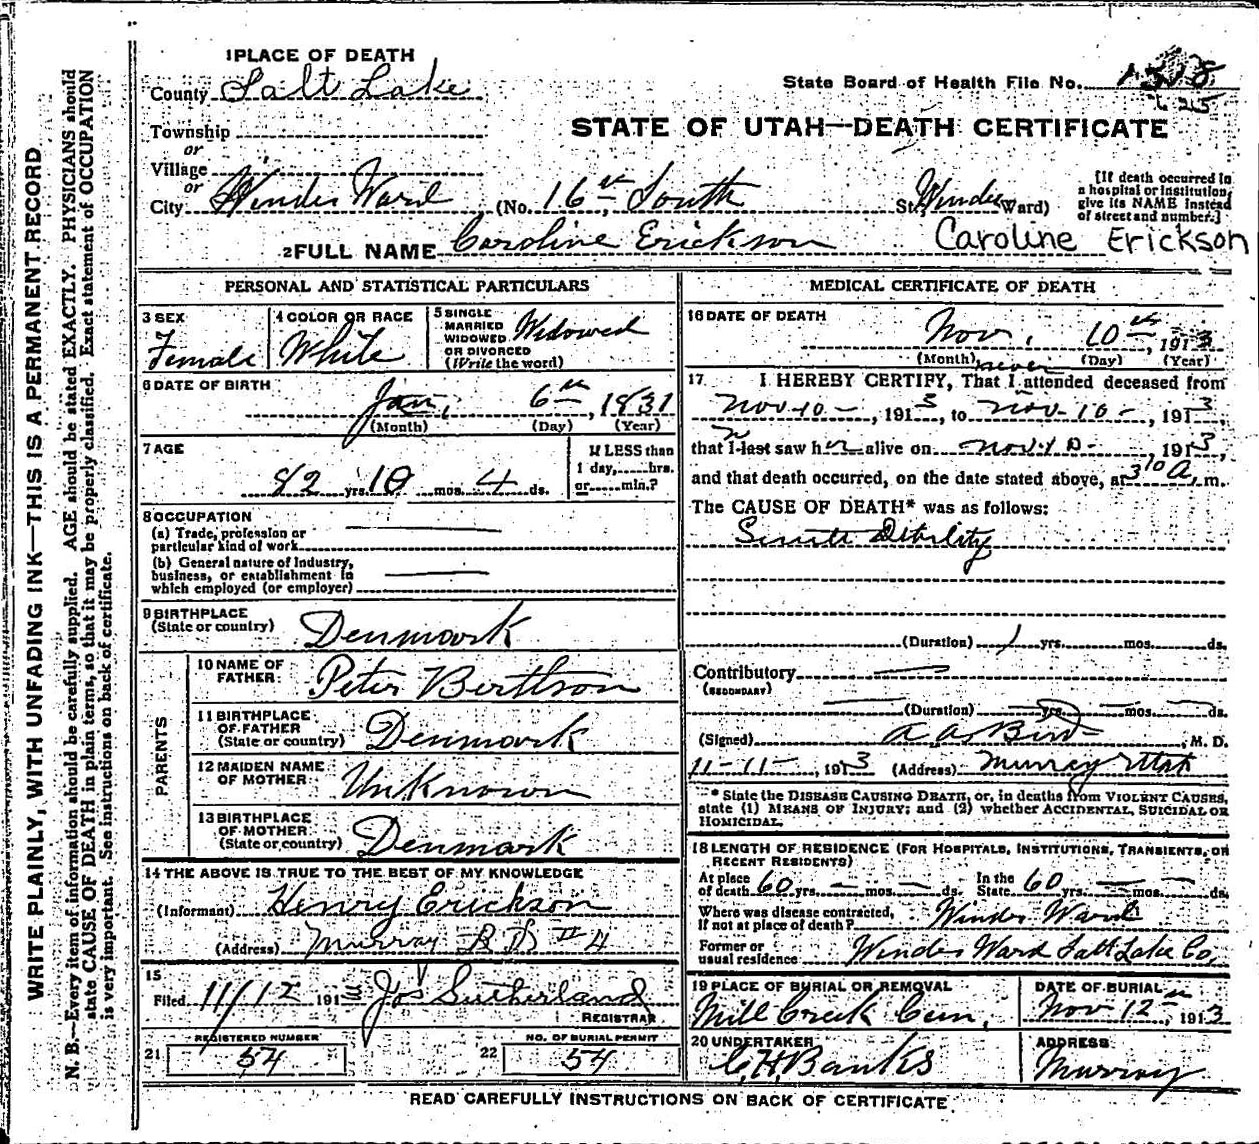 WRITE PLAINLY, WITH UNFADING INK—THIS IS A PERMANENT RECORD
N. B.—Every item of information should be carefully supplied. AGE should be stated EXACTLY. PHYSICIANS should
state CAUSE OF DEATH in plain terms, so that it may be properly classified. Exact statement of OCCUPATION
is very important. See instructions on back of certificate.
1 PLACE OF DEATH
County Salt Lake
State Board of Health File No.
Township
or
STATE OF UTAH—DEATH CERTIFICATE
Village
or
City Winder Ward (No. 16th South St. Winder Ward)
[If death occurred in
a hospital or institution,
give its NAME instead
of street and number.]
2 FULL NAME Caroline Erickson Caroline Erickson
PERSONAL AND STATISTICAL PARTICULARS
3 SEX
Female
4 COLOR OR RACE
White
5 SINGLE
MARRIED
WIDOWED
OR DIVORCED
(Write the word)
Widowed
6 DATE OF BIRTH
Jan, 6th, 1831
(Month) (Day) (Year)
7 AGE
82 yrs. 10 mos. 4 ds.
If LESS than
1 day, hrs.
or min.?
8 OCCUPATION
(a) Trade, profession or
particular kind of work
(b) General nature of Industry,
business, or establishment in
which employed (or employer)
9 BIRTHPLACE
(State or country) Denmark
PARENTS
10 NAME OF
FATHER Peter Berthson
11 BIRTHPLACE
OF FATHER
(State or country) Denmark
12 MAIDEN NAME
OF MOTHER Unknown
13 BIRTHPLACE
OF MOTHER
(State or country) Denmark
14 THE ABOVE IS TRUE TO THE BEST OF MY KNOWLEDGE
(Informant) Henry Erickson
(Address) Murray R D #4
15
Filed 11/12 191 Jos Sutherland
REGISTRAR
21 REGISTERED NUMBER
54
22 NO. OF BURIAL PERMIT
54
MEDICAL CERTIFICATE OF DEATH
16 DATE OF DEATH
Nov, 10th, 1913
(Month) (Day) (Year)
never
17 I HEREBY CERTIFY, That I attended deceased from
Nov-10-, 1913, to Nov-10-, 1913,
that I last saw her alive on Nov-10-, 1913,
and that death occurred, on the date stated above, at 3 10 A. m.
The CAUSE OF DEATH* was as follows:
Senile Debility
(Duration) 1 yrs. mos. ds.
Contributory
(SECONDARY)
(Duration) yrs. mos. ds.
(Signed) A. A. Bird, M. D.
11-11-, 1913 (Address) Murray Utah
* State the DISEASE CAUSING DEATH, or, in deaths from VIOLENT CAUSES,
state (1) MEANS OF INJURY; and (2) whether ACCIDENTAL, SUICIDAL OR
HOMICIDAL.
18 LENGTH OF RESIDENCE (FOR HOSPITALS, INSTITUTIONS, TRANSIENTS, OR
RECENT RESIDENTS)
At place
of death 60 yrs. — mos. — ds.
In the
State 60 yrs. — — ds.
Where was disease contracted,
If not at place of death? Winder Ward
Former or
usual residence Winder Ward Salt Lake Co.
19 PLACE OF BURIAL OR REMOVAL
Mill Creek Cem,
DATE OF BURIAL
Nov 12th, 1913
20 UNDERTAKER
C. H. Banks
ADDRESS
Murray
READ CAREFULLY INSTRUCTIONS ON BACK OF CERTIFICATE